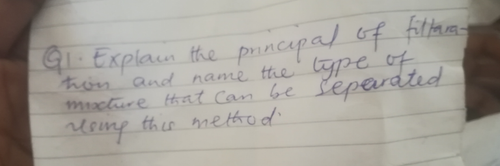 Q1. Explain the principal of filtara-
tion and name the type of
mixture that can be separated
using this method.